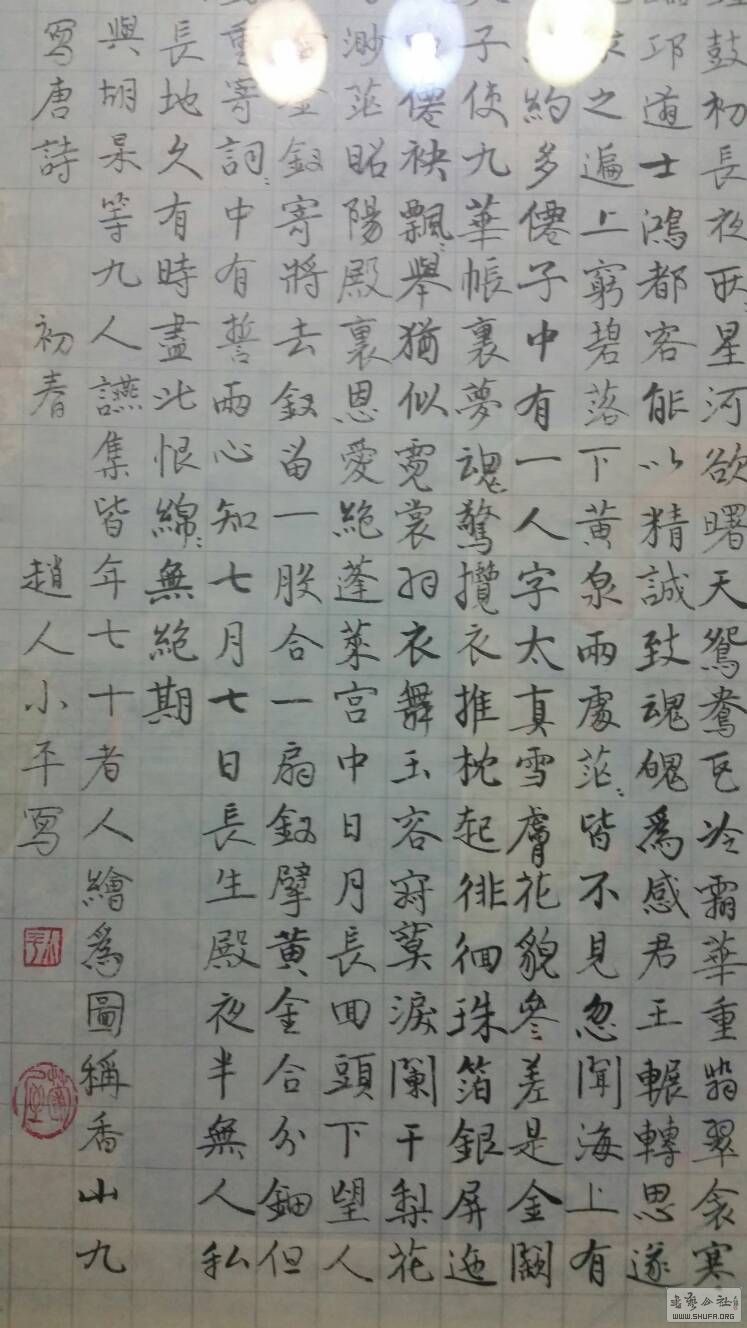 鼓初長夜耿星河欲曙天鴛鴦瓦冷霜華重翡翠衾寒
邛道士鴻都客能以精誠致魂魄爲感君王輾轉思遂
之遍上窮碧落下黃泉兩處茫〻皆不見忽聞海上有
約多僊子中有一人字太真雪膚花貌參差是金闕
子使九華帳裏夢魂驚攬衣推枕起徘徊珠箔銀屏迤
僊袂飄〻舉猶似霓裳羽衣舞玉容寂寞淚闌干梨花
渺茫昭陽殿裏恩愛絕蓬萊宮中日月長回頭下望人
釵寄將去釵留一股合一扇釵擘黃金合分鈿但
重寄詞〻中有誓兩心知七月七日長生殿夜半無人私
長地久有時盡此恨綿〻無絕期
與胡杲等九人讌集皆年七十者人繪爲圖稱香山九
寫唐詩 初春 趙人小平寫
WWW.SHUFA.ORG